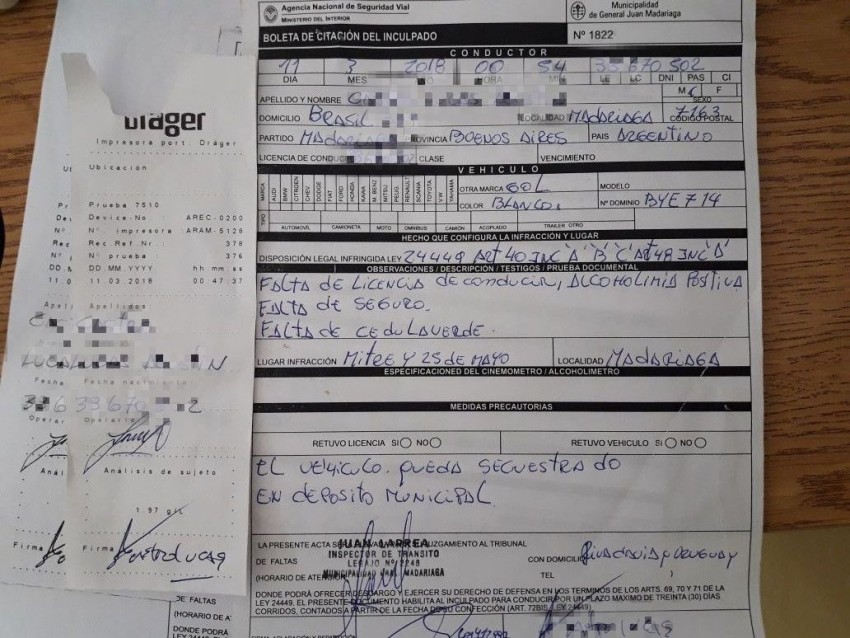 Agencia Nacional de Seguridad Vial
MINISTERIO DEL INTERIOR
Municipalidad
de General Juan Madariaga
BOLETA DE CITACIÓN DEL INCULPADO
Nº 1822
CONDUCTOR
11 3 2018 00 54
DIA MES HORA LE LC DNI PAS CI
M F
SEXO
APELLIDO Y NOMBRE
DOMICILIO BRASIL LOCALIDAD MADARIAGA 7163
CÓDIGO POSTAL
PARTIDO PROVINCIA BUENOS AIRES PAIS ARGENTINO
LICENCIA DE CONDUC CLASE VENCIMIENTO
VEHICULO
MARCA AUDI BMW CITROEN CHEV DODGE FIAT FORD HONDA KAWA M. BENZ MITSU PEUG. RENAULT SCANIA TOYOTA V.W YAMAHA
OTRA MARCA GOL MODELO
COLOR BLANCO. Nº DOMINIO BYE 714
TIPO
AUTOMÓVIL CAMIONETA MOTO OMNIBUS CAMIÓN ACOPLADO TRAILER OTRO
HECHO QUE CONFIGURA LA INFRACCIÓN Y LUGAR
DISPOSICIÓN LEGAL INFRINGIDA LEY 24449 ART 40 INC A B C ART 48 INC A
OBSERVACIONES / DESCRIPCIÓN / TESTIGOS / PRUEBA DOCUMENTAL
FALTA DE LICENCIA DE CONDUCIR, ALCOHOLIMIA POSITIVA
FALTA DE SEGURO.
FALTA DE CEDULA VERDE.
LUGAR INFRACCIÓN MITRE Y 25 DE MAYO LOCALIDAD MADARIAGA
ESPECIFICACIONES DEL CINEMOMETRO / ALCOHOLIMETRO
MEDIDAS PRECAUTORIAS
RETUVO LICENCIA SI NO RETUVO VEHICULO SI NO
EL VEHICULO QUEDA SECUESTRADO
EN DEPOSITO MUNICIPAL
LA PRESENTE ACTA JUZGAMIENTO AL TRIBUNAL
JUAN LARREA
INSPECTOR DE TRANSITO
DE FALTAS LEGAJO Nº 2248 CON DOMICILIO Rivadavia y Uruguay
MUNICIPALIDAD MADARIAGA
(HORARIO DE ATENCIÓN TEL
DONDE PODRÁ OFRECER DESCARGO Y EJERCER SU DERECHO DE DEFENSA EN LOS TERMINOS DE LOS ARTS. 69, 70 Y 71 DE LA
LEY 24449. EL PRESENTE DOCUMENTO HABILITA AL INCULPADO PARA CONDUCIR POR UN PLAZO MAXIMO DE TREINTA (30) DIAS
CORRIDOS, CONTADOS A PARTIR DE LA FECHA DE SU CONFECCIÓN (ART. 72BIS LEY 24449).
DE FALTAS
(HORARIO DE A
DONDE PODRÁ
LEY 24449. EL
CORRIDOS
Dräger
Impresora port. Dräger
Ubicación
Prueba 7510
Device-No AREC-0200
Nº impresora ARAM-5128
Rec.Ref.Nr.: 378
Nº prueba 376
DD.MM.YYYY hh mm ss
11.03.2018 00:47:37
Apellidos
Fecha nacimiento
Operario
Análisis de sujeto
1.97 g/L
Firma